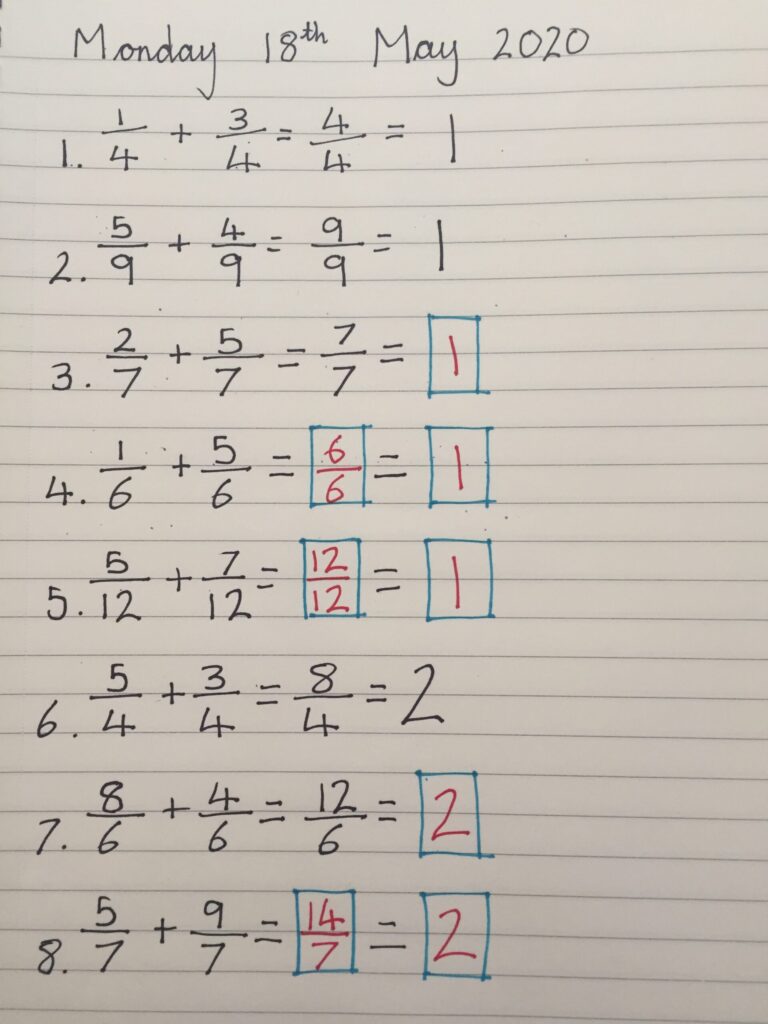 Monday 18th May 2020
1. 1/4 + 3/4 = 4/4 = 1
2. 5/9 + 4/9 = 9/9 = 1
3. 2/7 + 5/7 = 7/7 = 1
4. 1/6 + 5/6 = 6/6 = 1
5. 5/12 + 7/12 = 12/12 = 1
6. 5/4 + 3/4 = 8/4 = 2
7. 8/6 + 4/6 = 12/6 = 2
8. 5/7 + 9/7 = 14/7 = 2